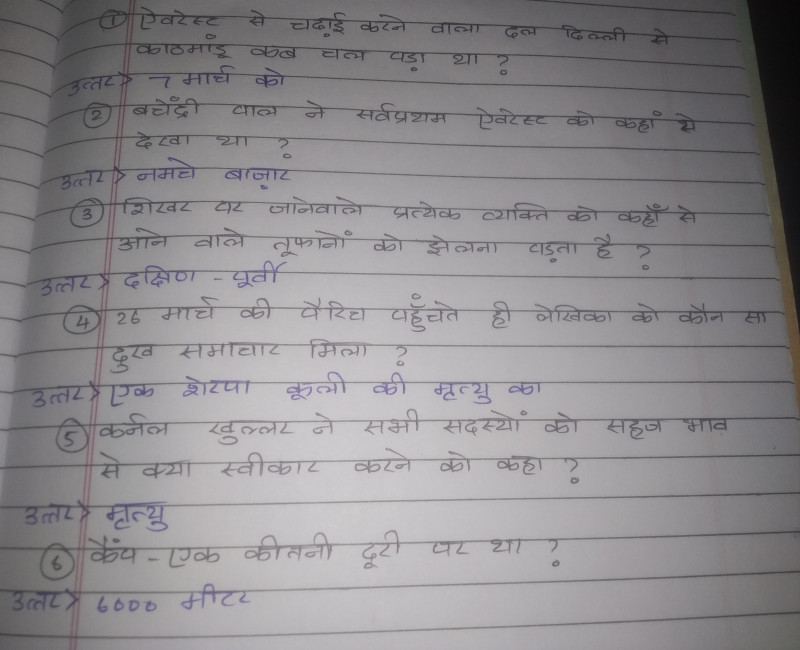 ① ऐवरेस्ट से चढ़ाई करने वाला दल दिल्ली से
काठमांडू कब चल पड़ा था ?
उत्तर> 7 मार्च को
② बचेंद्री पाल ने सर्वप्रथम ऐवरेस्ट को कहाँ से
देखा था ?
उत्तर> नमचे बाज़ार
③ शिखर पर जानेवाले प्रत्येक व्यक्ति को कहाँ से
आने वाले तूफानों को झेलना पड़ता है ?
उत्तर> दक्षिण - पूर्वी
④ 26 मार्च की पैरिच पहुँचते ही लेखिका को कौन सा
दुख समाचार मिला ?
उत्तर> एक शेरपा कूली की मृत्यु का
⑤ कर्नल खुल्लर ने सभी सदस्यों को सहज भाव
से क्या स्वीकार करने को कहा ?
उत्तर> मृत्यु
⑥ कैंप - एक कीतनी दूरी पर था ?
उत्तर> 6000 मीटर